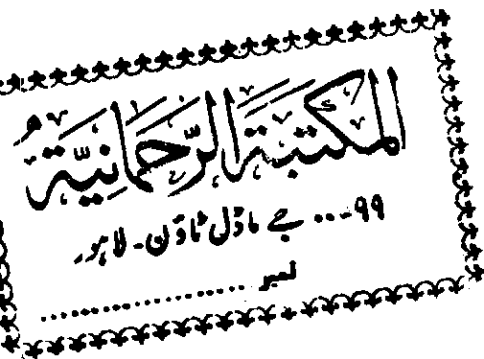 المكتبة الرحمانية
۹۹۔... جے ماڈل ٹاؤن۔ لاہور
نمبر ........................